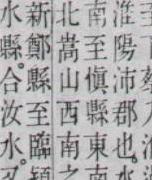 淮陽沛郡也。
南至愼縣東
北嵩山西南
新鄭縣至臨潁
水縣。合汝水。